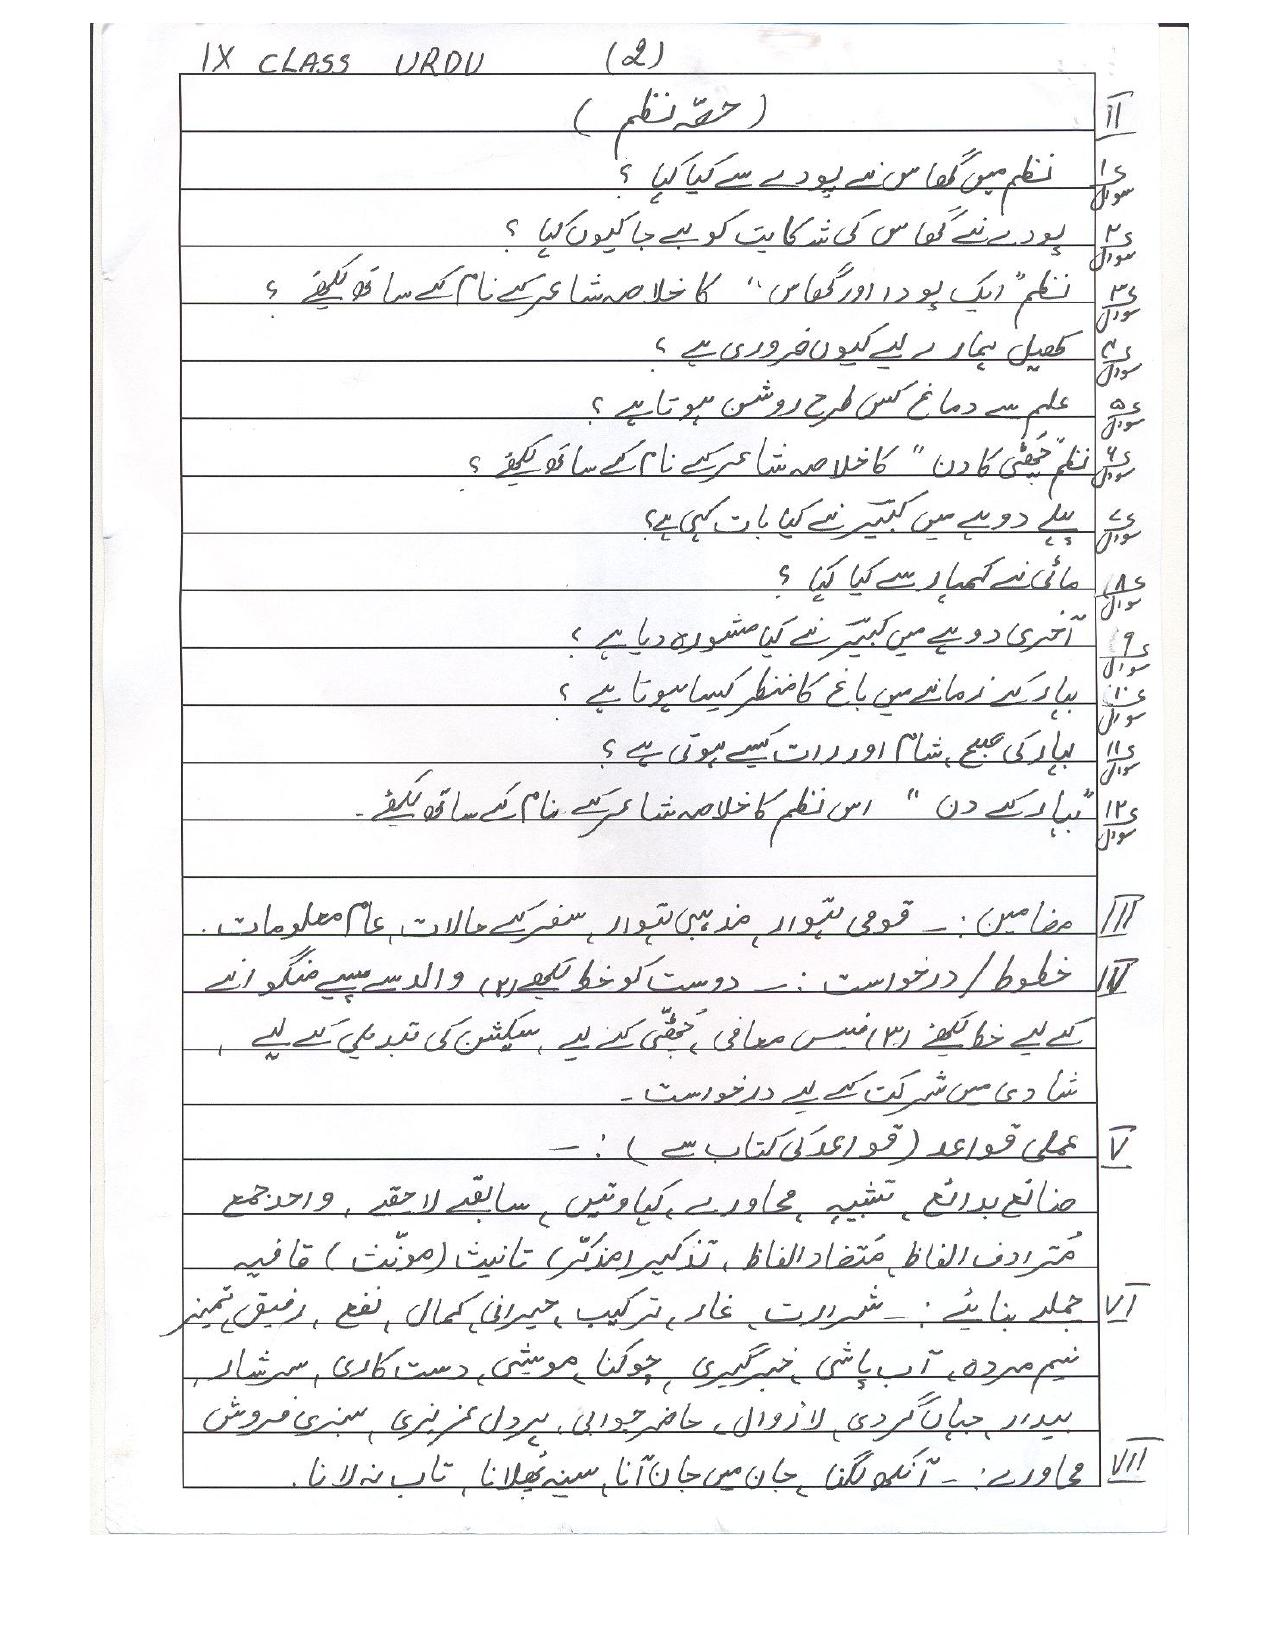 IX CLASS URDU (2)
II (حصّہ نظم)
سوال ۱ نظم میں گھاس نے پودے سے کیا کہا ؟
سوال ۲ پودے نے گھاس کی شکایت کو بے جا کیوں کہا ؟
سوال ۳ نظم "ایک پودا اور گھاس" کا خلاصہ شاعر کے نام کے ساتھ لکھئے ؟
سوال ۴ کھیل ہمارے لیے کیوں ضروری ہے ؟
سوال ۵ علم سے دماغ کس طرح روشن ہوتا ہے ؟
سوال ۶ نظم "چُھٹّی کا دن" کا خلاصہ شاعر کے نام کے ساتھ لکھئے ؟
سوال ۷ پہلے دوہے میں کبیر نے کیا بات کہی ہے؟
سوال ۸ مائی نے کمہار سے کیا کہا ؟
سوال ۹ آخری دوہے میں کبیر نے کیا مشورہ دیا ہے ؟
سوال ۱۰ بہار کے زمانے میں باغ کا منظر کیسا ہوتا ہے ؟
سوال ۱۱ بہار کی صبح، شام اور رات کیسے ہوتی ہے ؟
سوال ۱۲ "بہار کے دن" اس نظم کا خلاصہ شاعر کے نام کے ساتھ لکھئے۔
III مضامین :۔ قومی تہوار، مذہبی تہوار، سفر کے حالات، عام معلومات۔
IV خطوط / درخواست :۔ دوست کو خط لکھئے (۲) والد سے پیسے منگوانے
کے لیے خط لکھئے (۳) فیس معافی، چُھٹّی کے لیے، سیکشن کی تبدیلی کے لیے،
شادی میں شرکت کے لیے درخواست۔
V عملی قواعد (قواعد کی کتاب سے) :۔
صنائع بدائع، تشبیہ، محاورے، کہاوتیں، سابقے لاحقے، واحد جمع
مُترادف الفاظ، مُتضاد الفاظ، تذکیر (مذکّر) تانیث (مونّث) قافیہ
VI جملہ بنائیے :۔ شرارت، غار، ترکیب، حیرانی، کمال، نفع، رفیق، تمیز
نیم مردہ، آب پاشی، خبر گیری، چوکنا، مویشی، دست کاری، سرشار،
بیدار، جہاں گردی، لازوال، حاضر جوابی، ہر دل عزیزی، سبزی فروش
VII محاورے :۔ آنکھ لگنا، جان میں جان آنا، سینہ پُھلانا، تاب نہ لانا۔